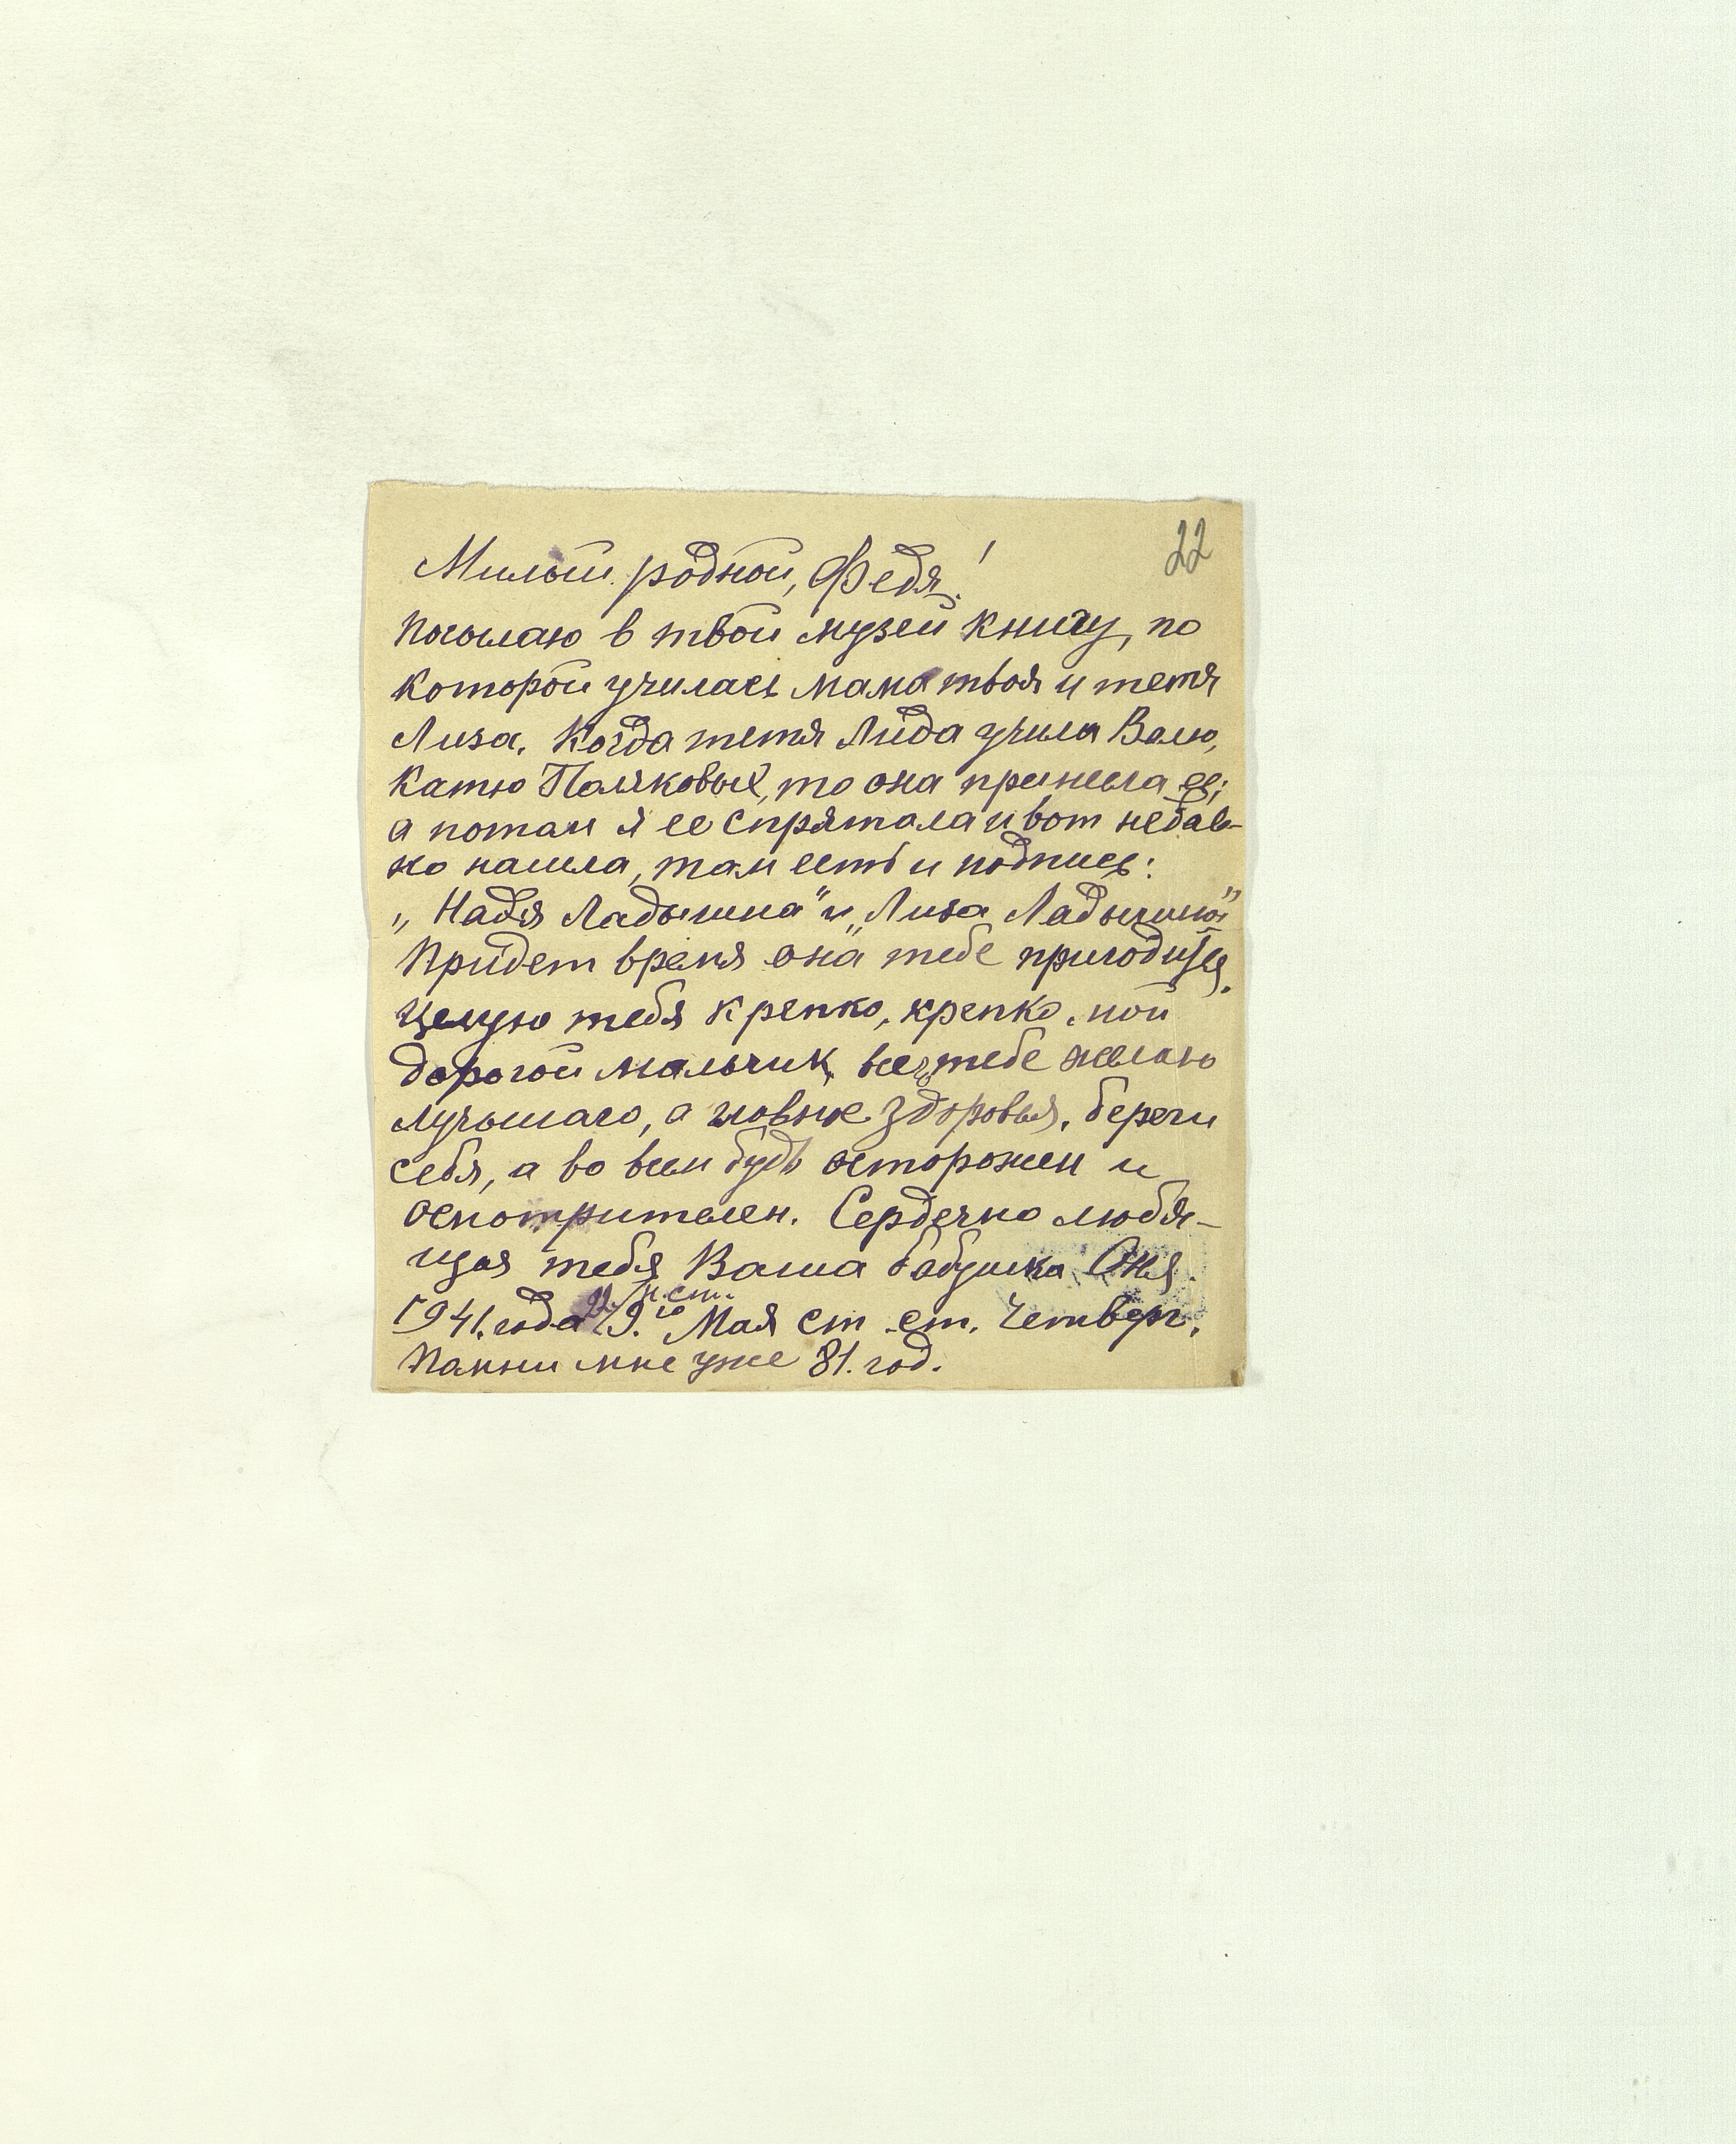 22
Милый родной, Федя!
Посылаю в твой музей книгу, по
которой училась мама твоя и тетя
Лиза. Когда тетя Лида учила Валю,
Катю Поляковых, то она принесла ее;
а потом я ее спрятала и вот недав-
но нашла, там есть и подпись:
„Надя Ладыгина" и „Лиза Ладыгина"
Придет время она тебе пригодится.
Целую тебя крепко, крепко, мой
дорогой мальчик, всего тебе желаю
лучшаго, а главное здоровья, береги
себя, а во всем будь осторожен и
осмотрителен. Сердечно любя-
щая тебя Ваша бабушка Оня.
22 н. ст.
1941. года 9.го Мая ст ст. Четверг.
Помни мне уже 81. год.